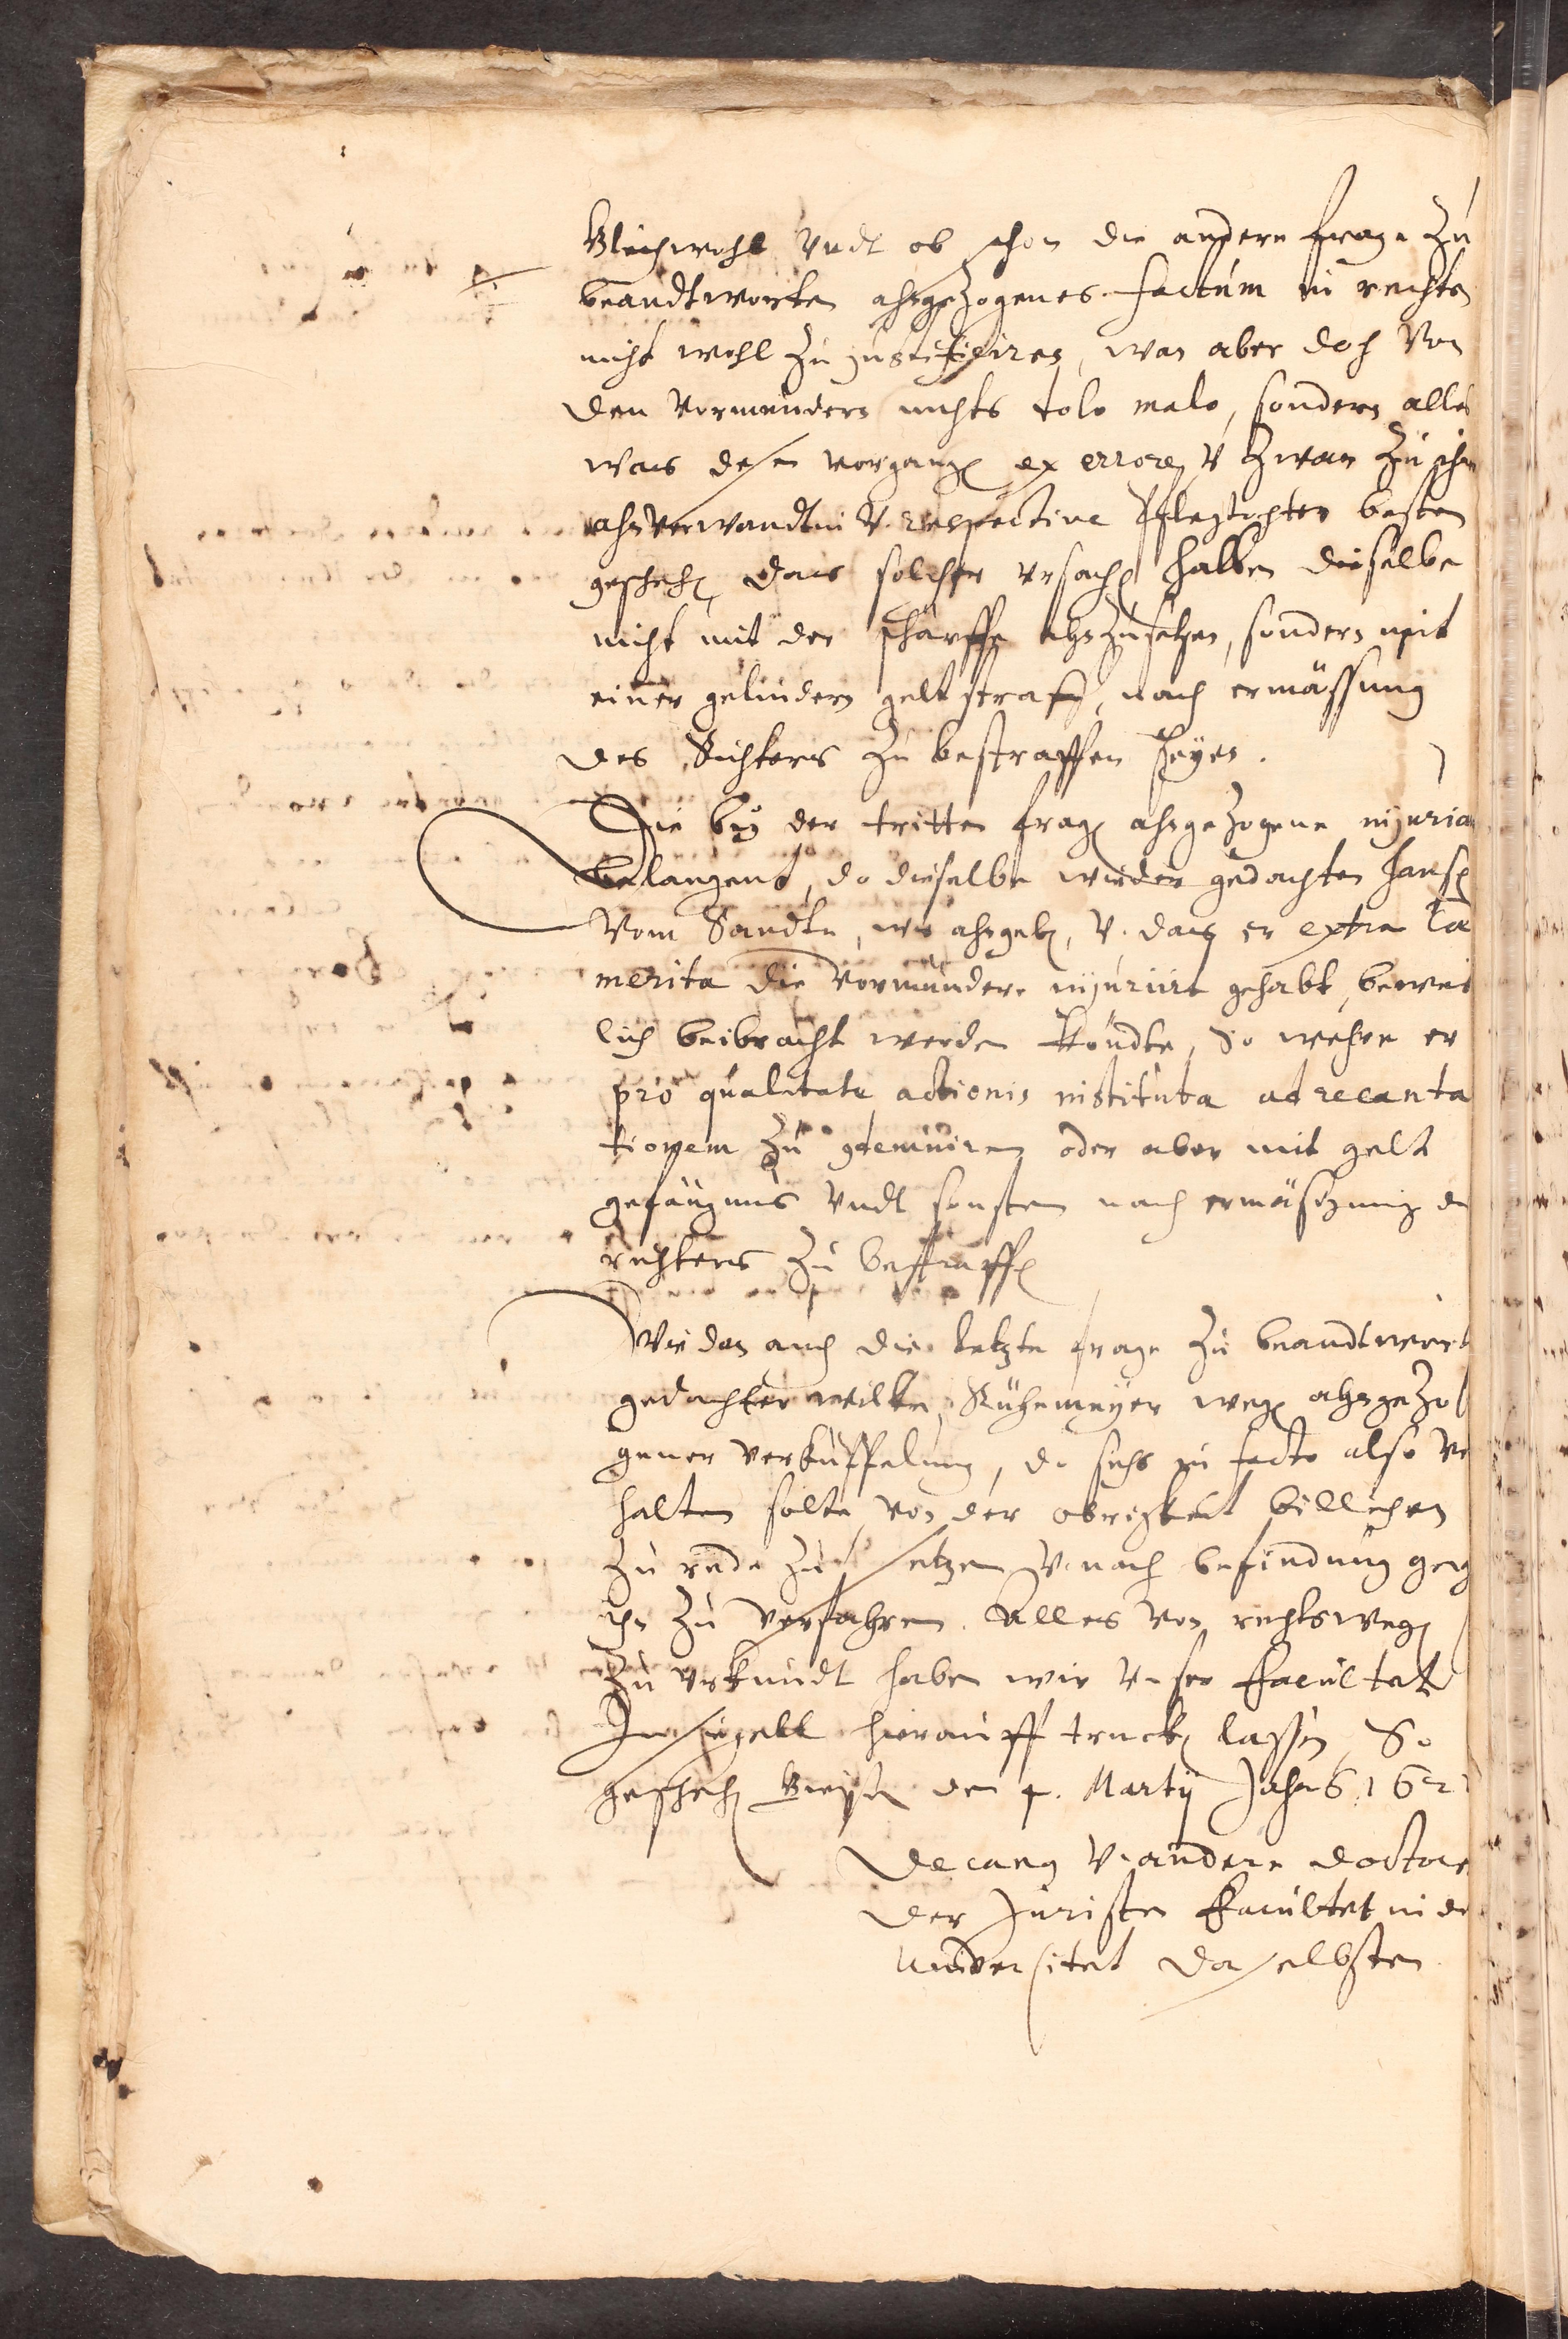 Gleichwohl vndt ob schon die andere frage zu
beandtworten ahngezogenes factum in rechten
nicht wohl zu justificiren, wan aber doch von
den vormündern nichts tolo malo, sondern alles
was dessen vorgangen ex errore v. zwar zu ihrer
ahnverwandtin v. respective Pflegtochter besten
geschehen, das solcher vrsachen halben dieselbe
nicht mit der schärffe ahnzusehen, sondern mit
einer gelindern gelt straff, nach ermässung
des Richters zu bestraffen seyen.
Die bey der tritten fragen ahngezogene injurien
belangent, do dieselbe wieder gedachten Hansen
vom Sandte, wie ahngeben, v. das er extra ca
merita die vormündere injurirt gehabt, beweis
lich beibracht werden köndte, So wehre er
pro qualitate actionis instituta ad recanta
tionem zu condemniren oder aber mit gelt
gefängnus vndt sonsten nach ermäßigung des
richters zu bestraffen
Wie dan auch die letzte frage zu beandtworten
gedachter wilken, wegen ahngezo
gener verkuppelung, do sichs in facto also ver
halten solte, von der obrigkeit billichen
zu rede zu setzen v. nach befindung gegen
ihn zu verfahren. Alles von rechtswegen
Zu vrkundt haben wir vnser Facultat
Insiegell hierauff trucken lassen, So
geschehen den 4. Martij Jahrs 162
Decanus v. andere doctores
der Juristen Facultet in der
Universitet daselbsten